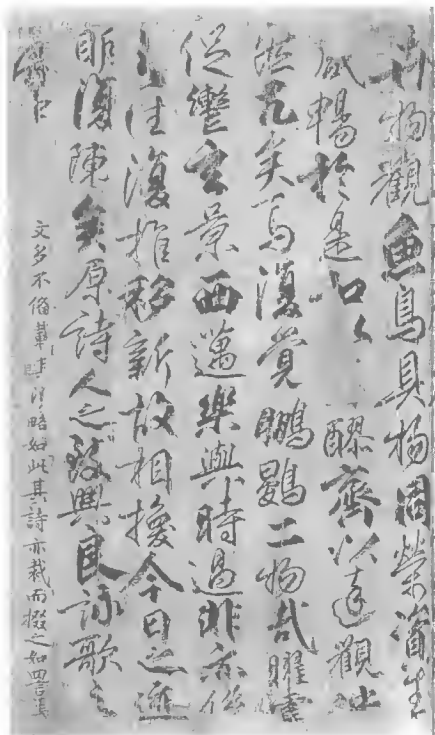 卉物觀魚鳥具物同榮資生
咸暢於是和以醪齊以達觀泱
然兀矣焉復覺鵬鷃二物哉曜靈
促轡玄景西邁樂與時過悲亦係
之往復推移新故相換今日之迹
明復陳矣原詩人之致興良詠歌之
有由
文多不備載其大略如此其詩亦裁而掇之如四言焉